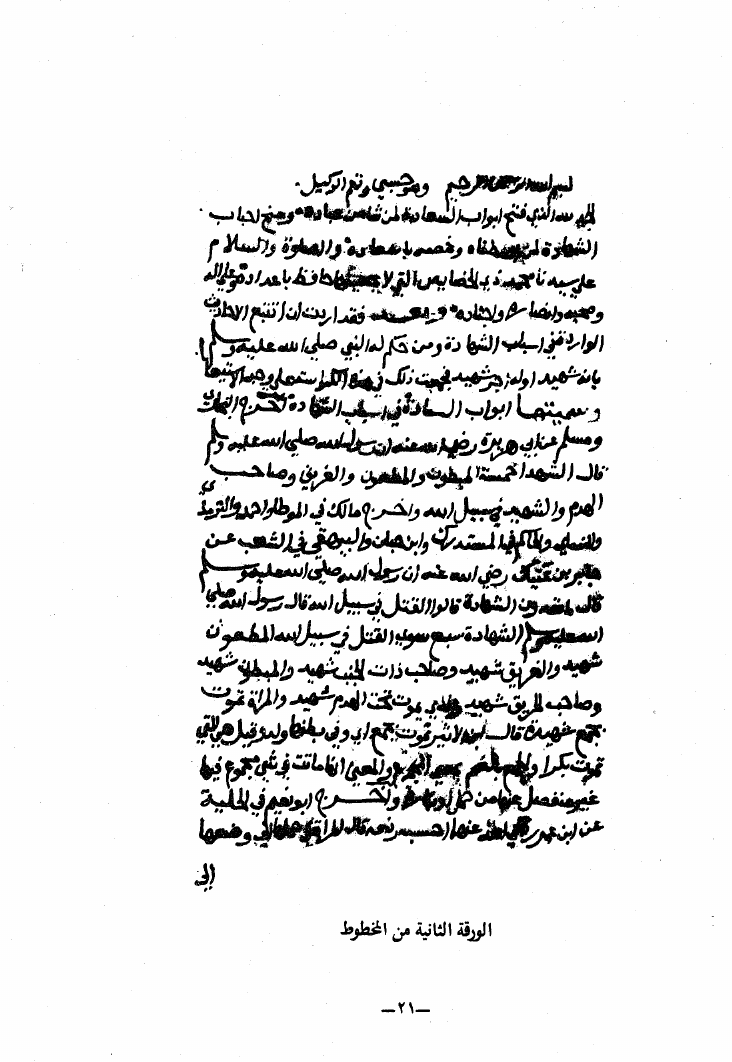 بسم الله الرحمن الرحيم وهو حسبي ونعم الوكيل
الحمد لله الذي فتح ابواب السعادة لمن شاء من عباده ومنح احباب
الشهادة لمن وخصه باسعاده والصلوة والسلام
على سيدنا محمد ذي الخصايص التي لا باعداده وعلى اله
وصحبه وانصاره واجناده و فقد اردت ان اتتبع الاحاديث
الواردة في اسباب الشهادة ومن حكم له النبي صلى الله عليه وسلم
بانه شهيد اوله اجر شهيد فجمعت ذلك في هذه
وسميتها ابواب السعادة في اسباب الشهادة اخرج البخاري
ومسلم عن ابي هريرة رضي الله عنه ان رسول الله صلى الله عليه وسلم
قال الشهدا خمسة المبطون والمطعون والغريق وصاحب
الهدم والشهيد في سبيل الله واخرج مالك في الموطا واحمد
والحاكم في المستدرك وابن حبان والبيهقي في الشعب عن
جابر بن عتيك رضي الله عنه ان رسول الله صلى الله عليه وسلم
قال ما تعدون الشهادة قالوا القتل في سبيل الله قال رسول الله صلى
الله عليه وسلم الشهادة سبع سوى القتل في سبيل الله المطعون
شهيد والغريق شهيد وصاحب ذات الجنب شهيد والمبطون شهيد
وصاحب الحريق شهيد والذي يموت تحت الهدم شهيد والمراة تموت
بجمع شهيدة قال ابن الاثير تموت بجمع اي وفي بطنها ولد وقيل هي التي
تموت بكرا والجمع بالضم والمعنى انها ماتت في شي مجموع فيها
غير منفصل عنها من حمل او بكارة واخرج ابو نعيم في الحلية
عن ابن عمر رضي الله عنها احسبه رفعه قال المراة في حملها الى وضعها
الى
الورقة الثانية من المخطوط
—٢١—